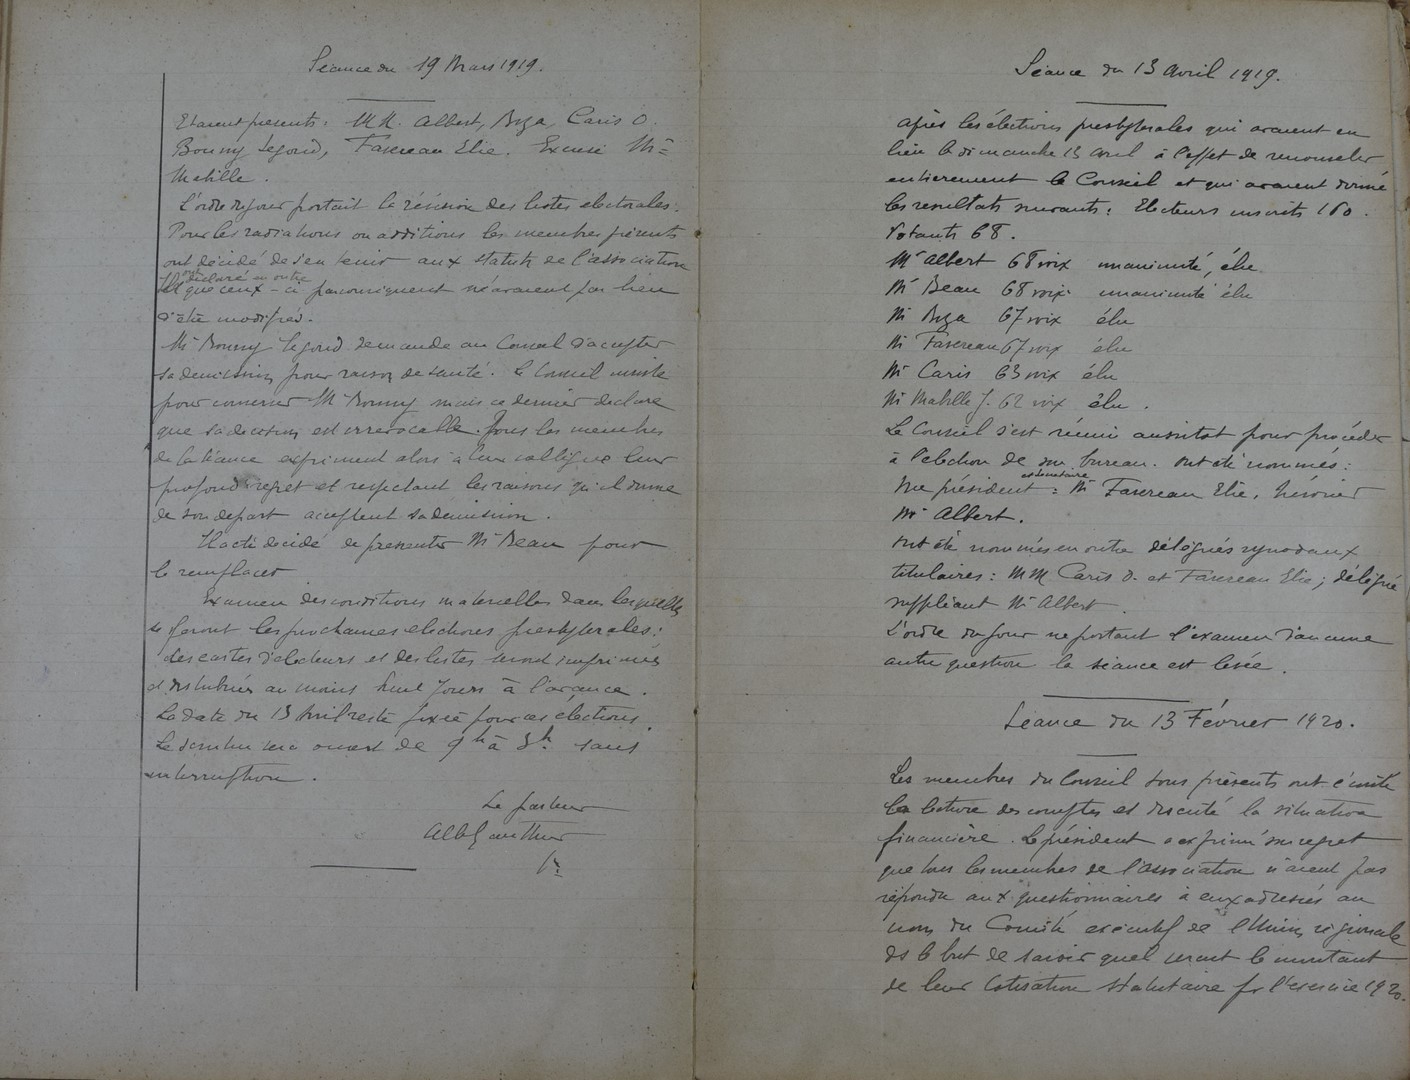 Séance du 19 Mars 1919.
Etaient présents : MM. Albert, Brza, Caris O.
Bonny Legoud, Favereau Elie. Excusé Mr
Matille.
L'ordre du jour portait la révision des listes électorales.
Pour les radiations ou additions les membres présents
ont décidé de s'en tenir aux statuts de l'association
ont déclaré en outre
que ceux-ci par conséquent n'avaient pas lieu
d'être modifiés.
Mr Bonny Legoud demande au Conseil d'accepter
sa démission pour raison de santé. Le Conseil insiste
pour conserver Mr Bonny mais ce dernier déclare
que sa décision est irrévocable. Tous les membres
de la séance expriment alors à leur collègue leur
profond regret et respectant les raisons qu'il donne
de son départ acceptent sa démission.
Il a été décidé de présenter Mr Beau pour
le remplacer
Examen des conditions matérielles dans lesquelles
se feront les prochaines élections presbytérales :
des cartes d'électeurs et des listes seront imprimés
et distribués au moins huit jours à l'avance.
La date du 13 Avril reste fixée pour ces élections.
Le scrutin sera ouvert de 9h à 3h sans
interruption.
Le pasteur
Séance du 13 Avril 1919.
Après les élections presbytérales qui avaient eu
lieu le dimanche 13 avril à l'effet de renouveler
entièrement le Conseil et qui avaient donné
les résultats suivants : Electeurs inscrits 160.
Votants 68.
Mr Albert 68 voix unanimité, élu
Mr Beau 68 voix unanimité élu
Mr Brza 67 voix élu
Mr Favereau 67 voix élu
Mr Caris 63 voix élu
Mr Matille J. 62 voix élu.
Le Conseil s'est réuni aussitôt pour procéder
à l'élection de son bureau. Ont été nommés :
et secrétaire
Vice président : Mr Favereau Elie, trésorier
Mr Albert.
Ont été nommés en outre délégués synodaux
titulaires : MM Caris O. et Favereau Elie ; délégué
suppléant Mr Albert.
L'ordre du jour ne portant l'examen d'aucune
autre question la séance est levée.
Séance du 13 Février 1920.
Les membres du Conseil tous présents ont écouté
la lecture des comptes et discuté la situation
financière. Le président a exprimé son regret
que tous les membres de l'association n'aient pas
répondu aux questionnaires à eux adressés au
nom du Comité exécutif de l'Union régionale
ds le but de savoir quel serait le montant
de leur cotisation statutaire pr l'exercice 1920.